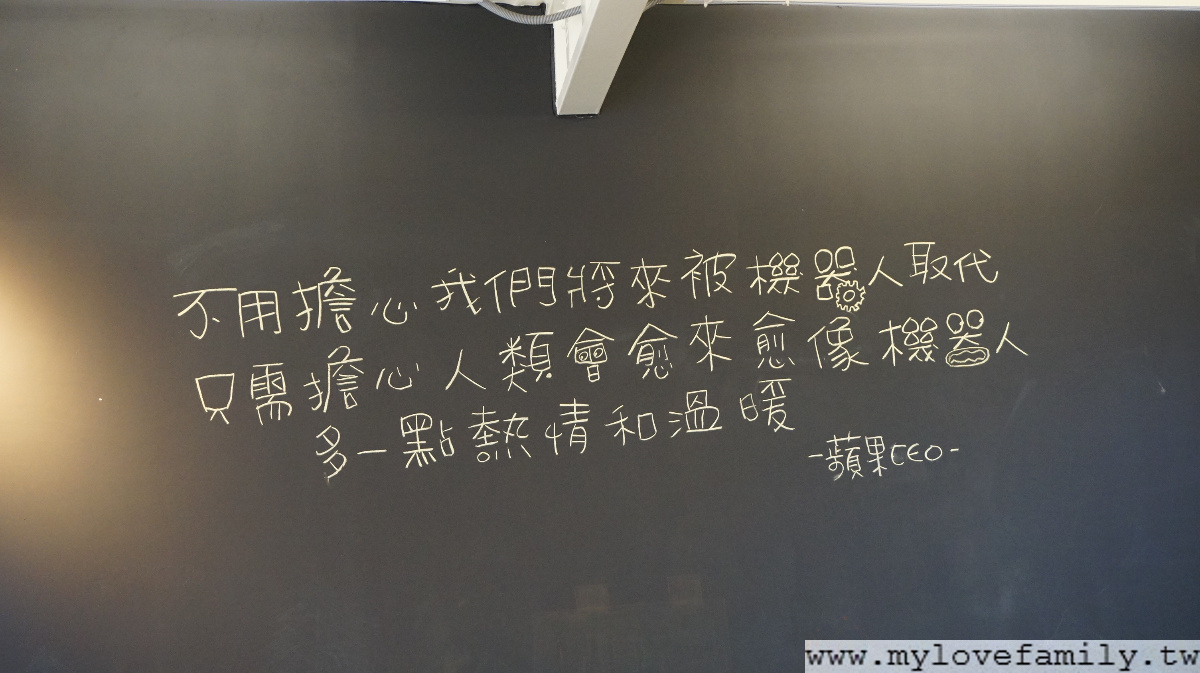 不用擔心我們將來被機器人取代
只需擔心人類會愈來愈像機器人
多一點熱情和溫暖
-蘋果CEO-
www.mylovefamily.tw